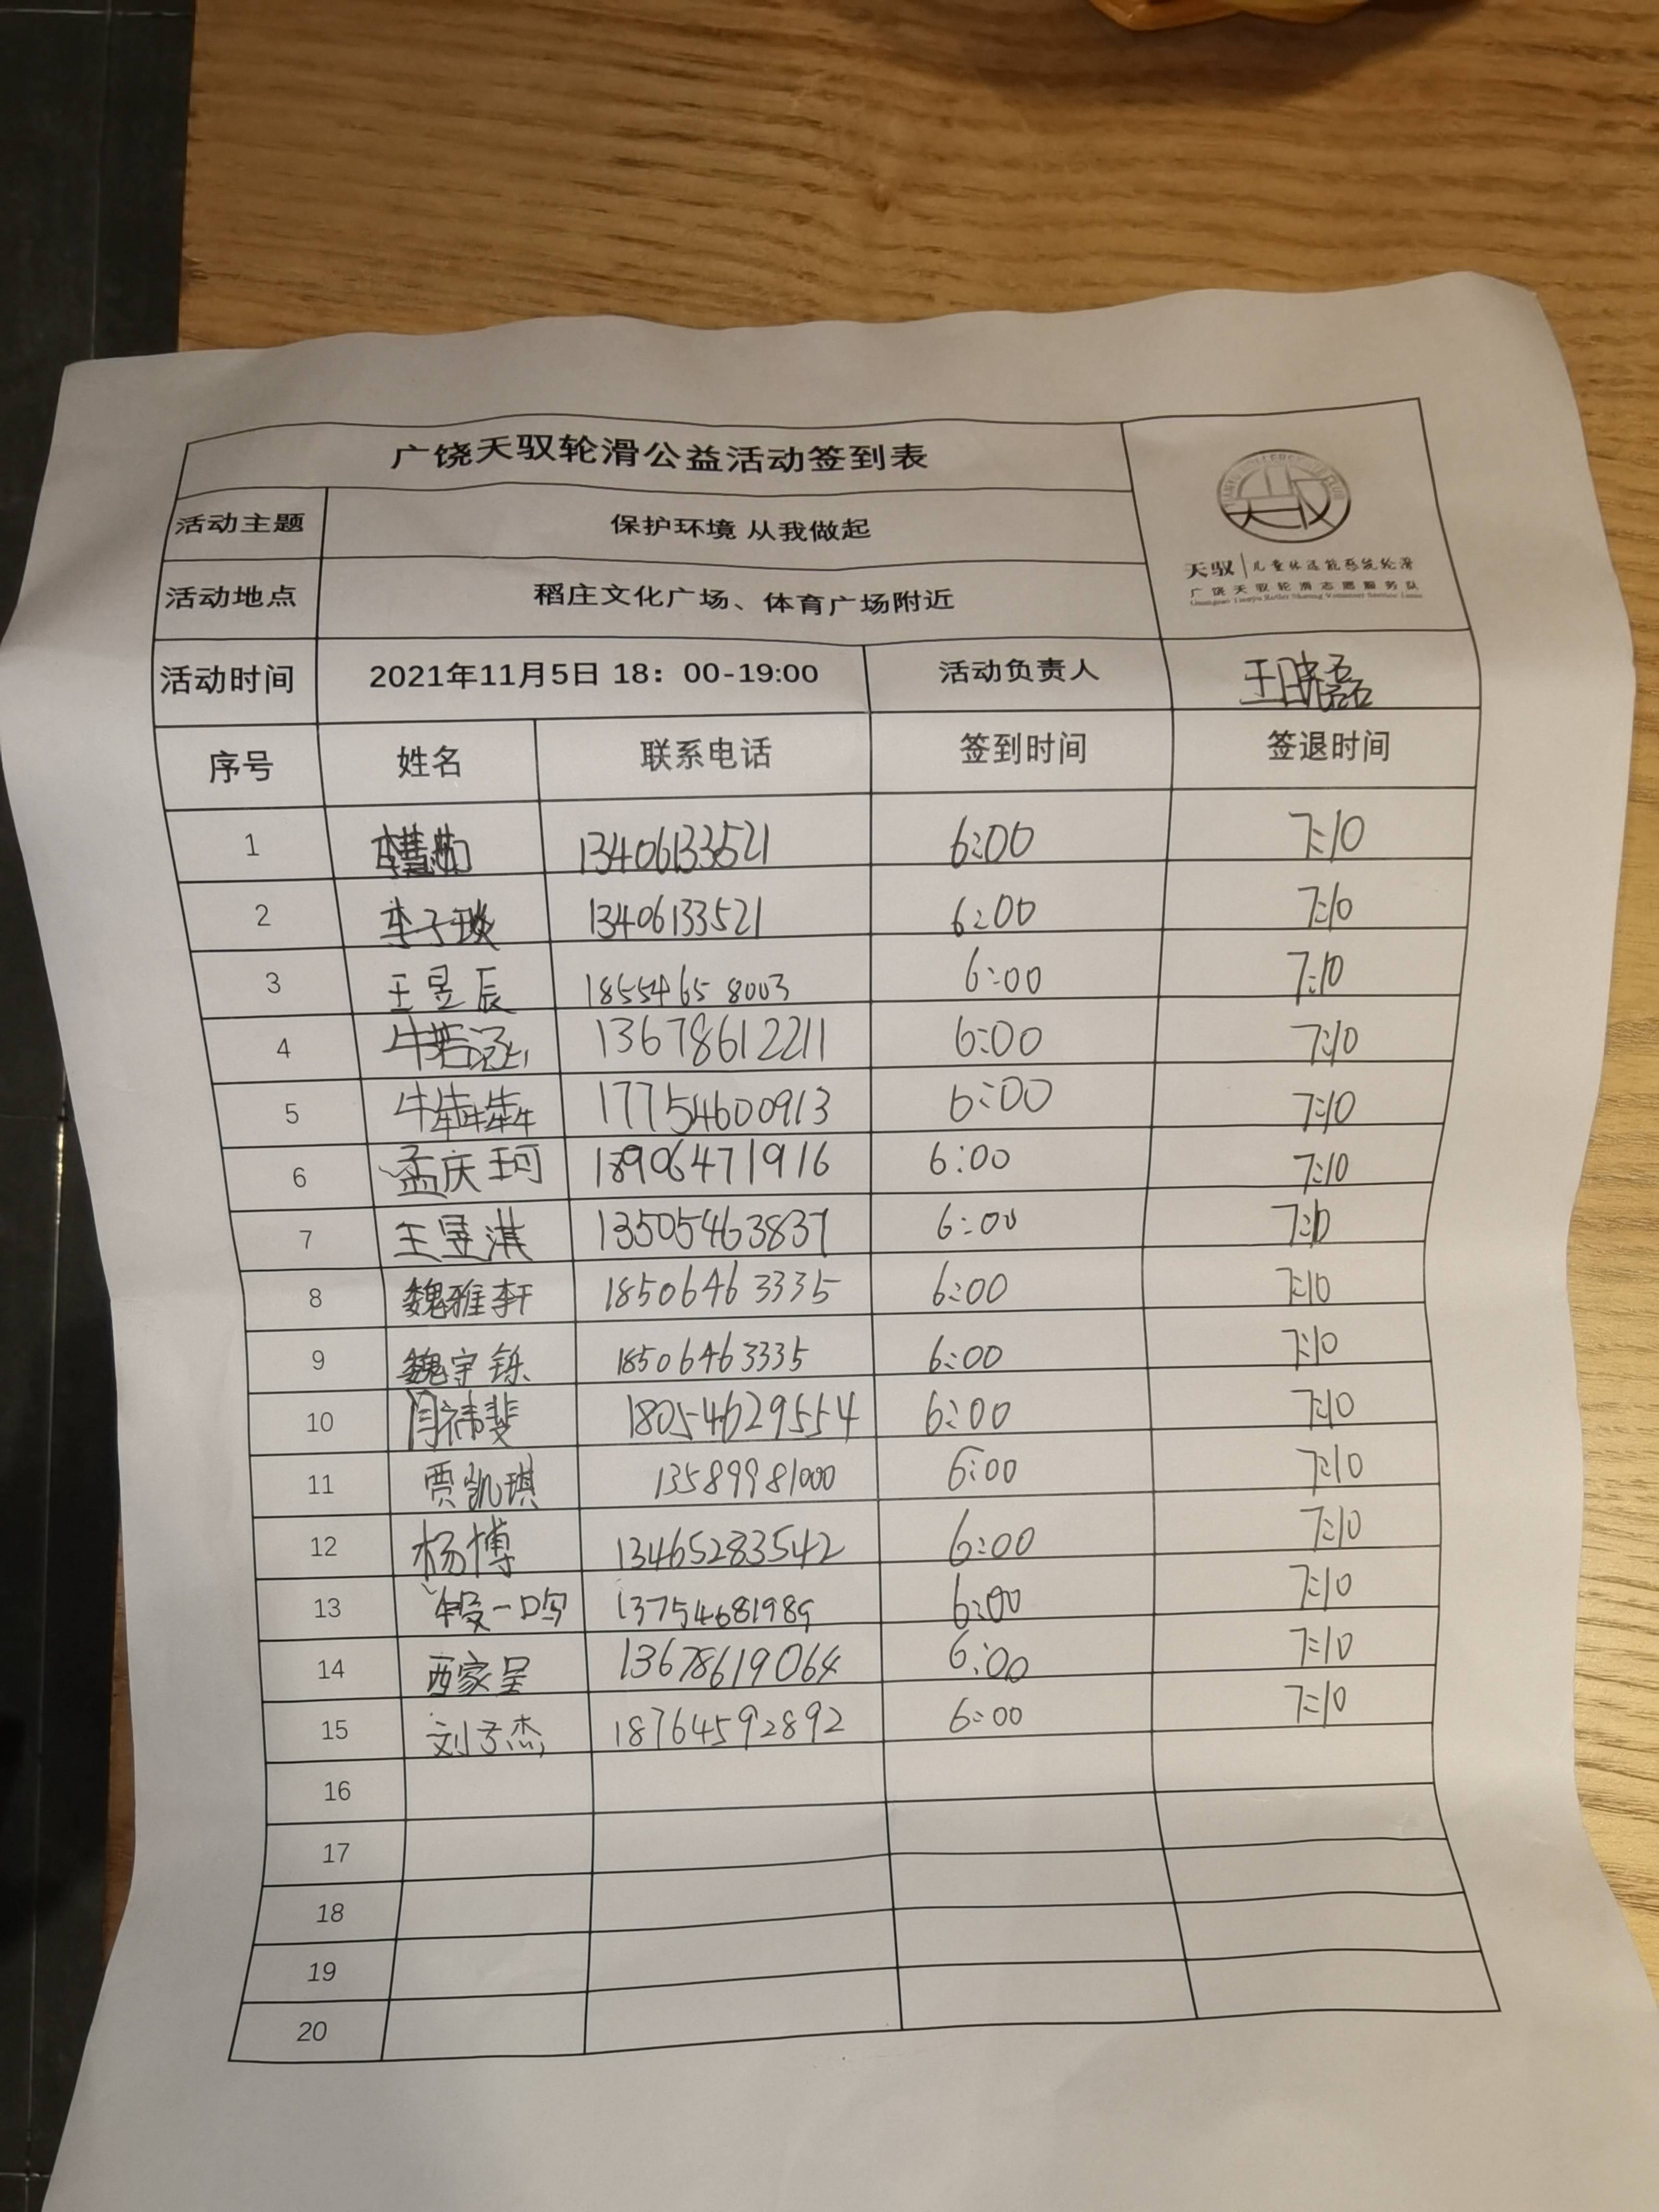 广饶天驭轮滑公益活动签到表
活动主题 保护环境 从我做起
天驭 儿童体适能系统轮滑
广饶天驭轮滑志愿服务队
活动地点 稻庄文化广场、体育广场附近
活动时间 2021年11月5日 18：00-19:00 活动负责人 王晓磊
序号 姓名 联系电话 签到时间 签退时间
1 13406133521 6:00 7:10
2 李子琰 13406133521 6:00 7:10
3 王昱辰 18554658003 6:00 7:10
4 牛若涵 13678612211 6:00 7:10
5 牛犇犇 17754600913 6:00 7:10
6 孟庆珂 18906471916 6:00 7:10
7 王昱淇 13505463837 6:00 7:10
8 魏雅轩 18506463335 6:00 7:10
9 魏宇铄 18506463335 6:00 7:10
10 闫祎斐 18054629554 6:00 7:10
11 贾凯琪 13589981000 6:00 7:10
12 杨博 13465283542 6:00 7:10
13 一鸣 13754681989 6:00 7:10
14 西家呈 13678619064 6:00 7:10
15 刘子杰 18764592892 6:00 7:10
16
17
18
19
20